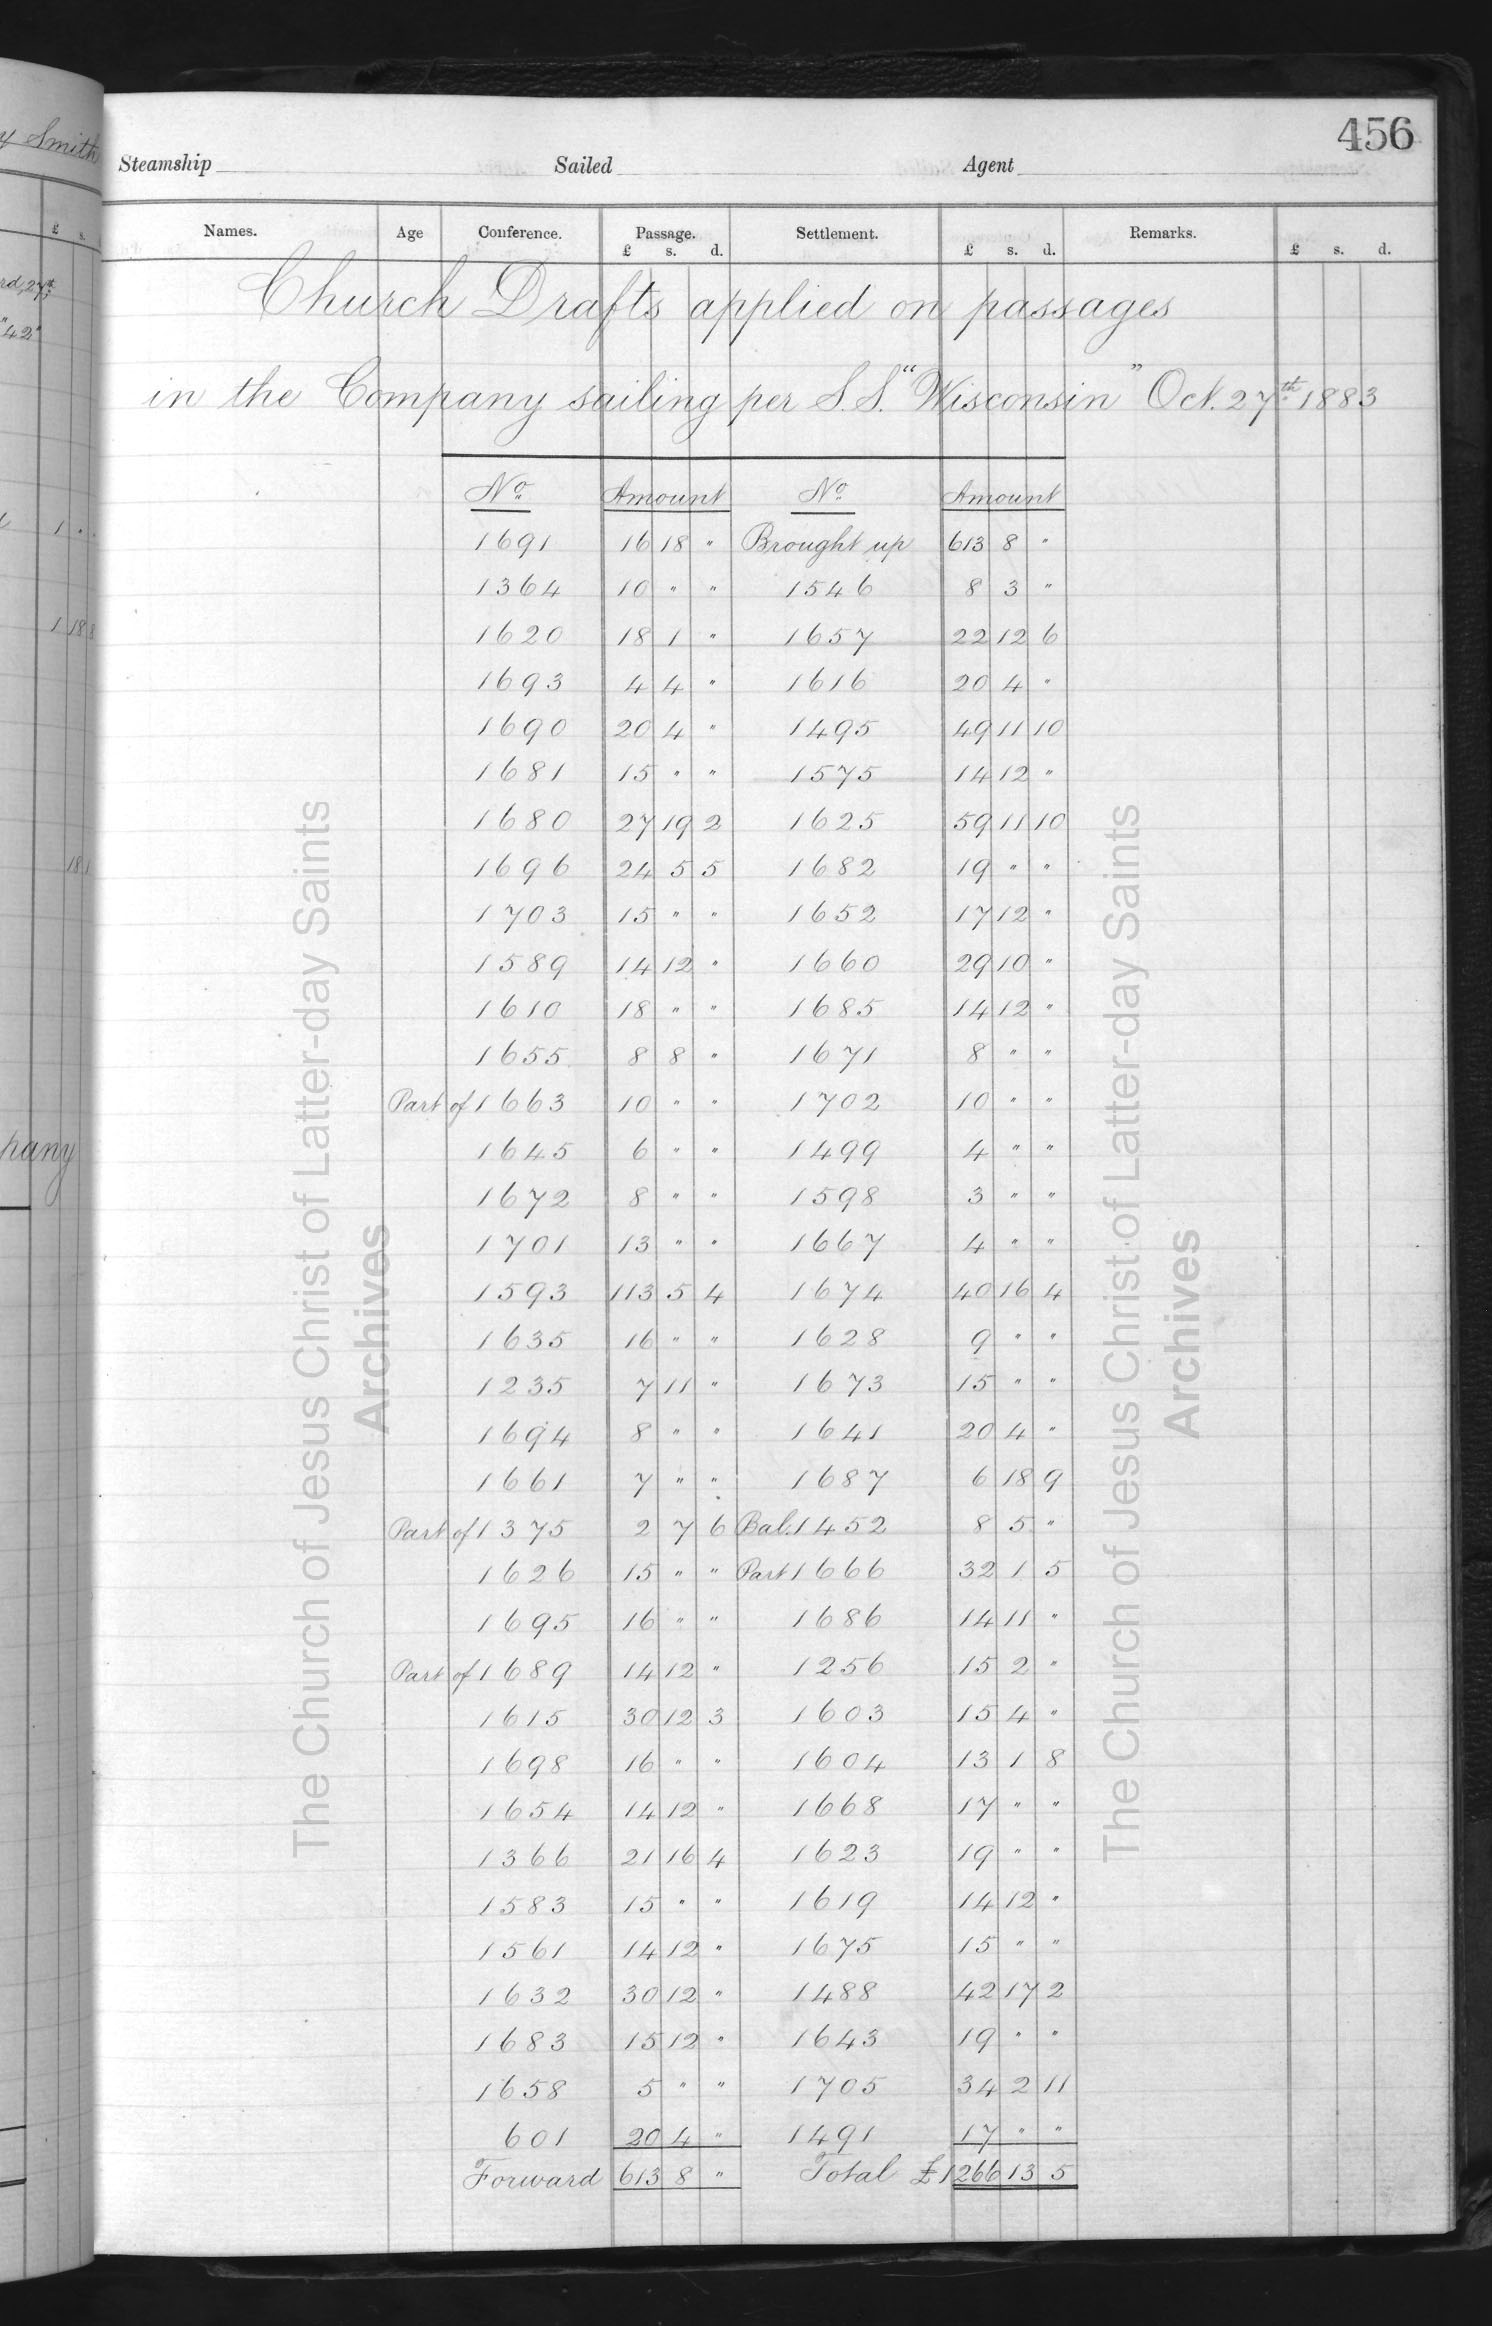 456
Steamship Sailed Agent
Names. Age Conference. Passage. Settlement. Remarks.
£ s. d. £ s. d. £ s. d.
Church Drafts applied on passages
in the Company sailing per S.S. "Wisconsin" Oct. 27th 1883
No. Amount No. Amount
1691 16 18 " Brought up 613 8 "
1364 10 " " 1546 8 3 "
1620 18 1 " 1657 22 12 6
1693 4 4 " 1616 20 4 "
1690 20 4 " 1495 49 11 10
1681 15 " " 1575 14 12 "
1680 27 19 2 1625 59 11 10
1696 24 5 5 1682 19 " "
1703 15 " " 1652 17 12 "
1589 14 12 " 1660 29 10 "
1610 18 " " 1685 14 12 "
1655 8 8 " 1671 8 " "
Part of 1663 10 " " 1702 10 " "
1645 6 " " 1499 4 " "
1672 8 " " 1598 3 " "
1701 13 " " 1667 4 " "
1593 113 5 4 1674 40 16 4
1635 16 " " 1628 9 " "
1235 7 11 " 1673 15 " "
1694 8 " " 1641 20 4 "
1661 7 " " 1687 6 18 9
Part of 1375 2 7 6 Bal. 1452 8 5 "
1626 15 " " Part 1666 32 1 5
1695 16 " " 1686 14 11 "
Part of 1689 14 12 " 1256 15 2 "
1615 30 12 3 1603 15 4 "
1698 16 " " 1604 13 1 8
1654 14 12 " 1668 17 " "
1366 21 16 4 1623 19 " "
1583 15 " " 1619 14 12 "
1561 14 12 " 1675 15 " "
1632 30 12 " 1488 42 17 2
1683 15 12 " 1643 19 " "
1658 5 " " 1705 34 2 11
601 20 4 " 1491 17 " "
Forward 613 8 " Total £1266 13 5
The Church of Jesus Christ of Latter-day Saints
Archives
The Church of Jesus Christ of Latter-day Saints
Archives
y Smith
£ s.
rd, 27th
"42"
1 "
1 18 8
18 1
pany